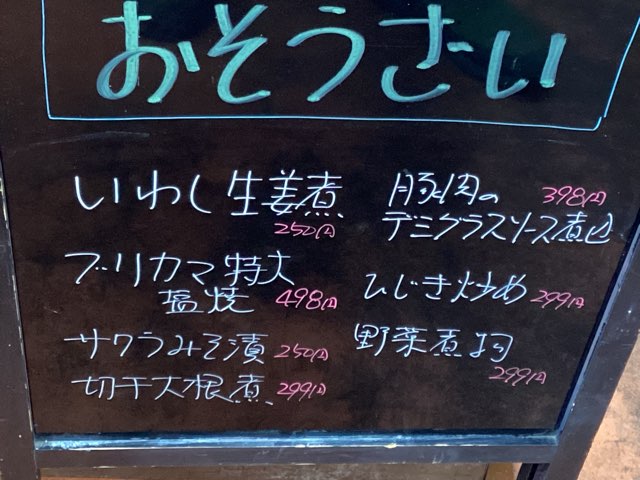 おそうさい
いわし生姜煮
250円
ブリカマ特大
塩焼 498円
サワラみそ漬 250円
切干大根煮 299円
豚肉の 398円
デミグラスソース煮込
ひじき炒め 299円
野菜煮物
299円